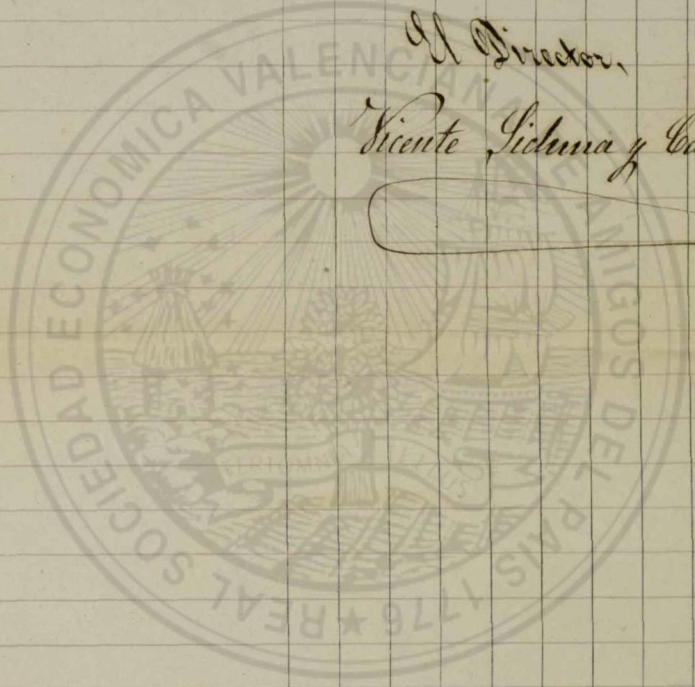 El Director,
Vicente Liduna y Ca
REAL SOCIEDAD ECONOMICA VALENCIANA DE AMIGOS DEL PAIS 1776